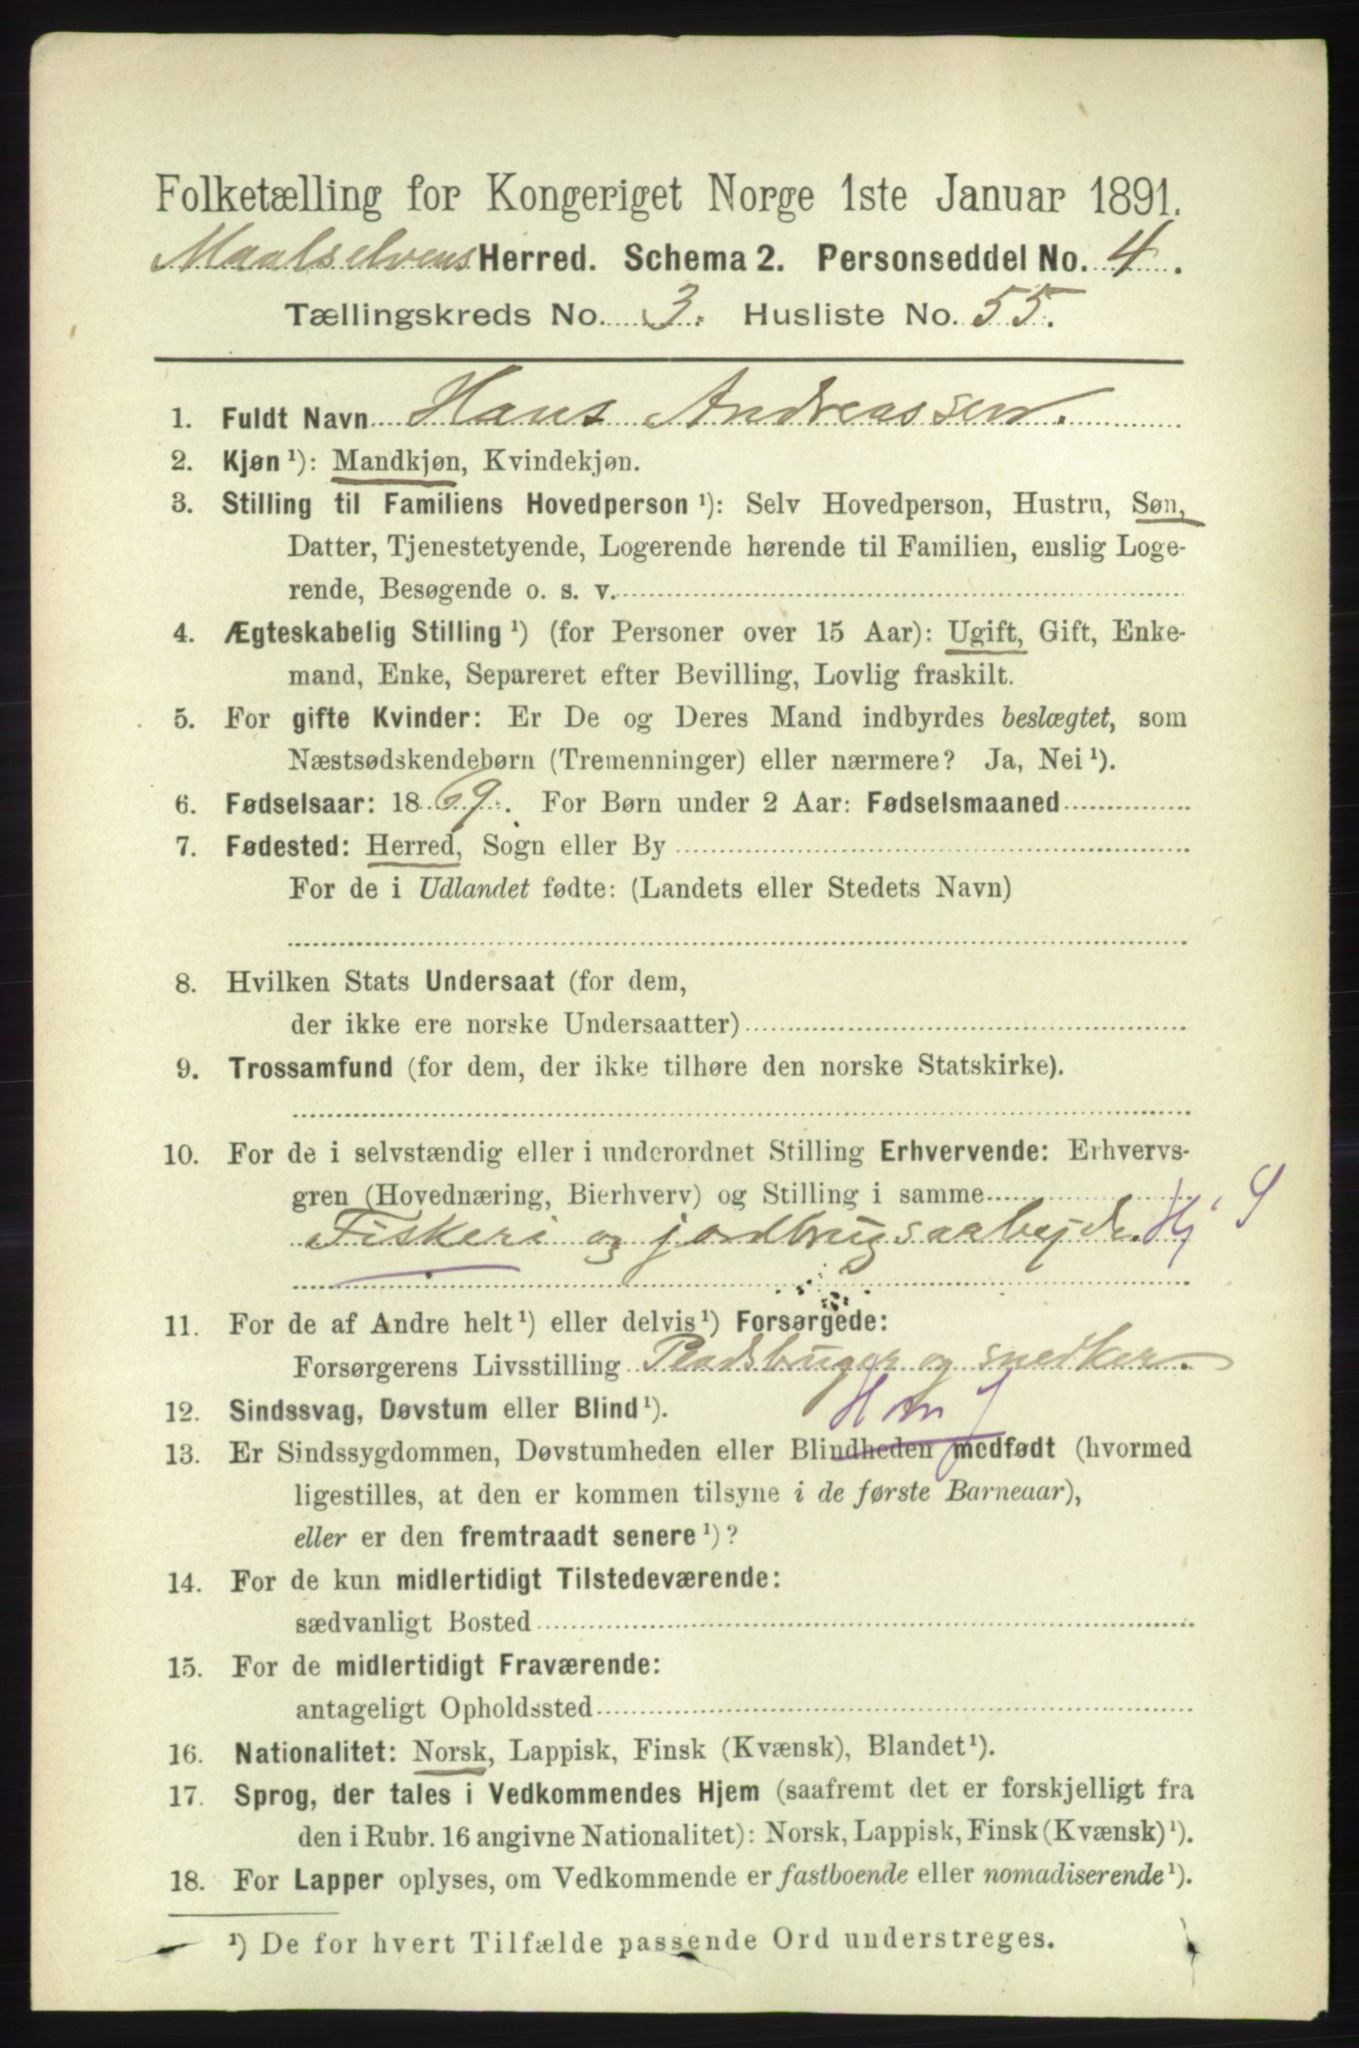 Folketælling for Kongeriget Norge 1ste Januar 1891.
Maalselvens Herred. Schema 2. Personseddel No. 4.
Tællingskreds No. 3. Husliste No. 55.
1. Fuldt Navn Hans Andreassen.
2. Kjøn ¹): Mandkjøn, Kvindekjøn.
3. Stilling til Familiens Hovedperson ¹): Selv Hovedperson, Hustru, Søn,
Datter, Tjenestetyende, Logerende hørende til Familien, enslig Loge-
rende, Besøgende o. s. v.
4. Ægteskabelig Stilling ¹) (for Personer over 15 Aar): Ugift, Gift, Enke-
mand, Enke, Separeret efter Bevilling, Lovlig fraskilt.
5. For gifte Kvinder: Er De og Deres Mand indbyrdes beslægtet, som
Næstsødskendebørn (Tremenninger) eller nærmere? Ja, Nei ¹).
6. Fødselsaar: 1869. For Børn under 2 Aar: Fødselsmaaned
7. Fødested: Herred, Sogn eller By
For de i Udlandet fødte: (Landets eller Stedets Navn)
8. Hvilken Stats Undersaat (for dem,
der ikke ere norske Undersaatter)
9. Trossamfund (for dem, der ikke tilhøre den norske Statskirke).
10. For de i selvstændig eller i underordnet Stilling Erhvervende: Erhvervs-
gren (Hovednæring, Bierhverv) og Stilling i samme
Fiskeri og jordbrugsaarbejde. Hj S
11. For de af Andre helt ¹) eller delvis ¹) Forsørgede:
Forsørgerens Livsstilling Pladsbruger og snedker.
12. Sindssvag, Døvstum eller Blind ¹).
13. Er Sindssygdommen, Døvstumheden eller Blindheden medfødt (hvormed
ligestilles, at den er kommen tilsyne i de første Barneaar),
eller er den fremtraadt senere ¹)?
14. For de kun midlertidigt Tilstedeværende:
sædvanligt Bosted
15. For de midlertidigt Fraværende:
antageligt Opholdssted
16. Nationalitet: Norsk, Lappisk, Finsk (Kvænsk), Blandet ¹).
17. Sprog, der tales i Vedkommendes Hjem (saafremt det er forskjelligt fra
den i Rubr. 16 angivne Nationalitet): Norsk, Lappisk, Finsk (Kvænsk) ¹).
18. For Lapper oplyses, om Vedkommende er fastboende eller nomadiserende ¹).
¹) De for hvert Tilfælde passende Ord understreges.